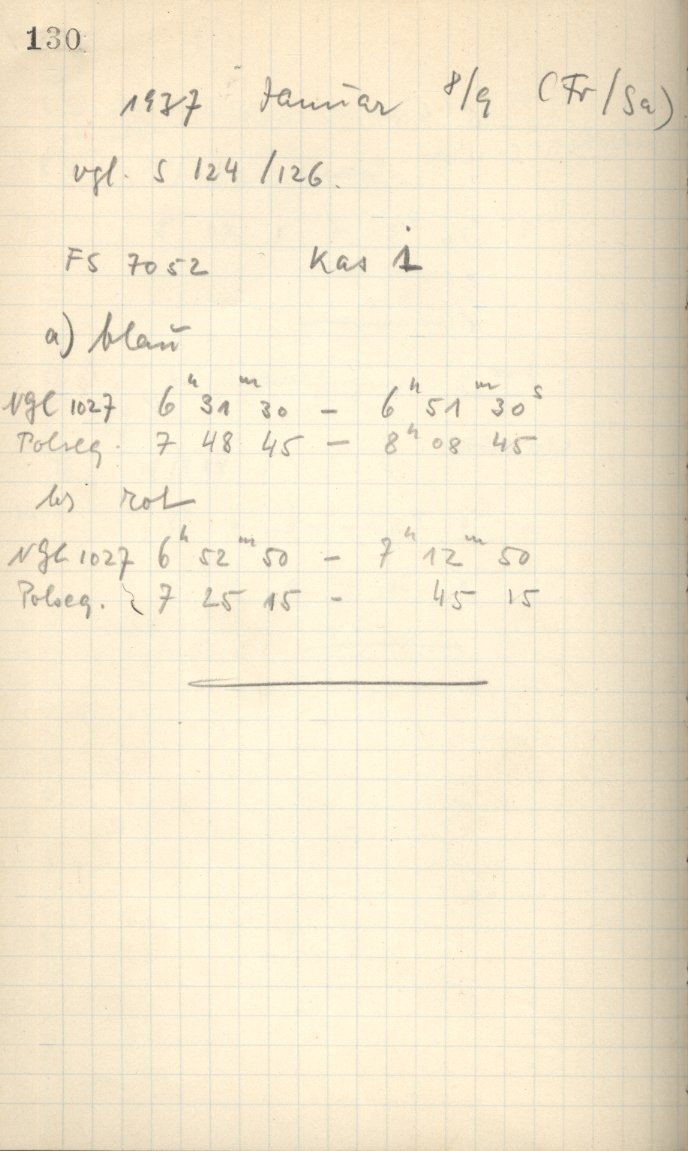 130
1937 Januar 8/9 (Fr/Sa)
vgl. S 124/126.
FS 7052 Kas 1
a) blau
NGC 1027 6ʰ 31ᵐ 30 – 6ʰ 51ᵐ 30ˢ
Polseq. 7 48 45 – 8ʰ 08 45
b) rot
NGC 1027 6ʰ 52ᵐ 50 – 7ʰ 12ᵐ 50
Polseq. 7 25 15 – 45 15